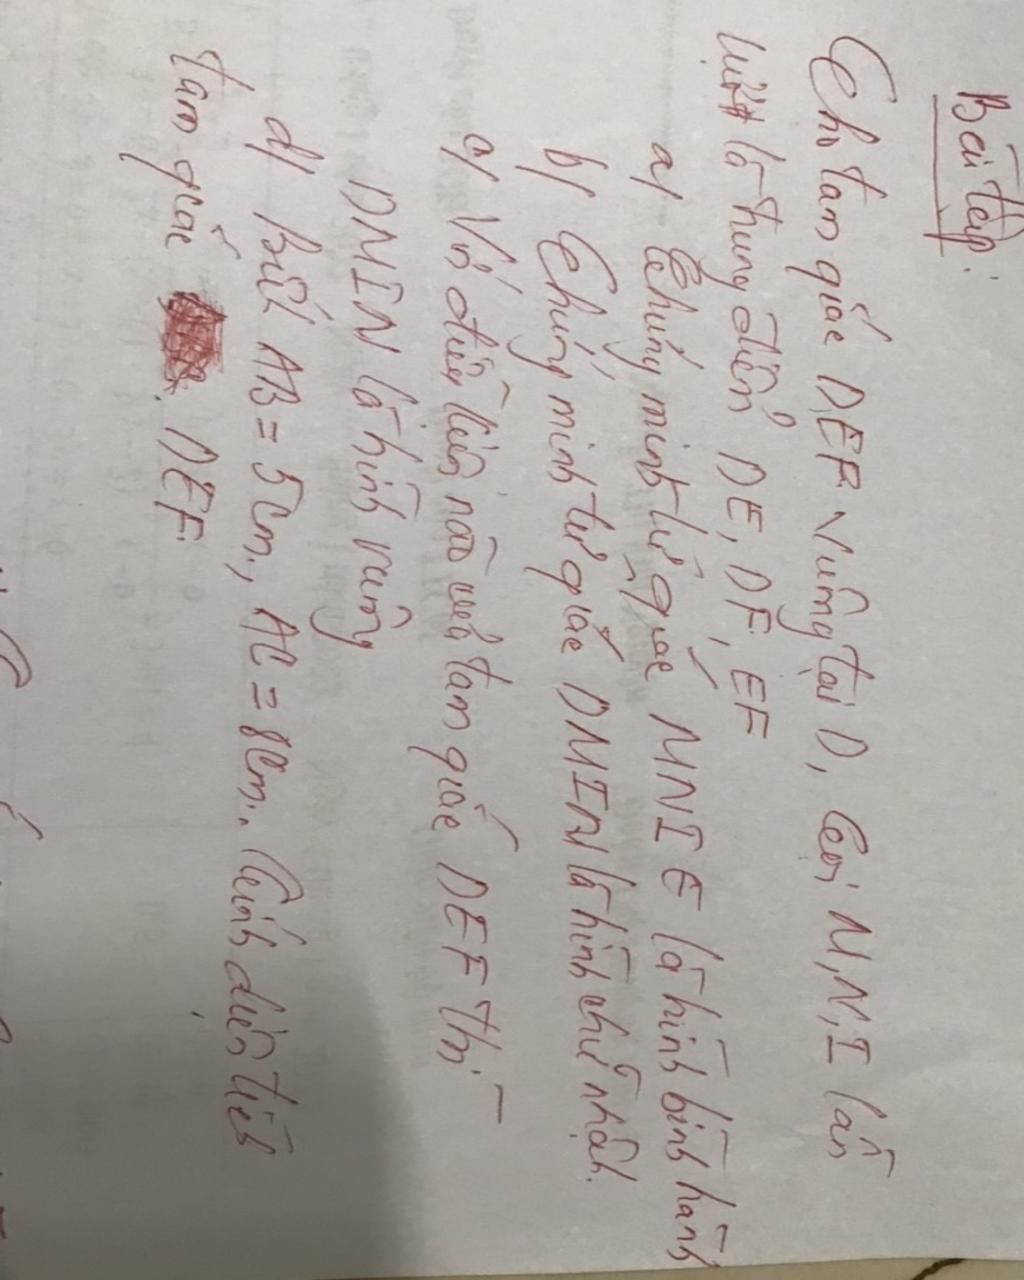 Bài tập:
Cho tam giác DEF vuông tại D, Gọi M, N, I lần
lượt là trung điểm DE, DF, EF
a/ Chứng minh tứ giác MNIE là hình bình hành
b/ Chứng minh tứ giác DMIN là hình chữ nhật.
c/ Với điều kiện nào của tam giác DEF thì
DMIN là hình vuông
d/ Biết AB = 5cm, AC = 8cm. Tính diện tích
tam giác DEF.